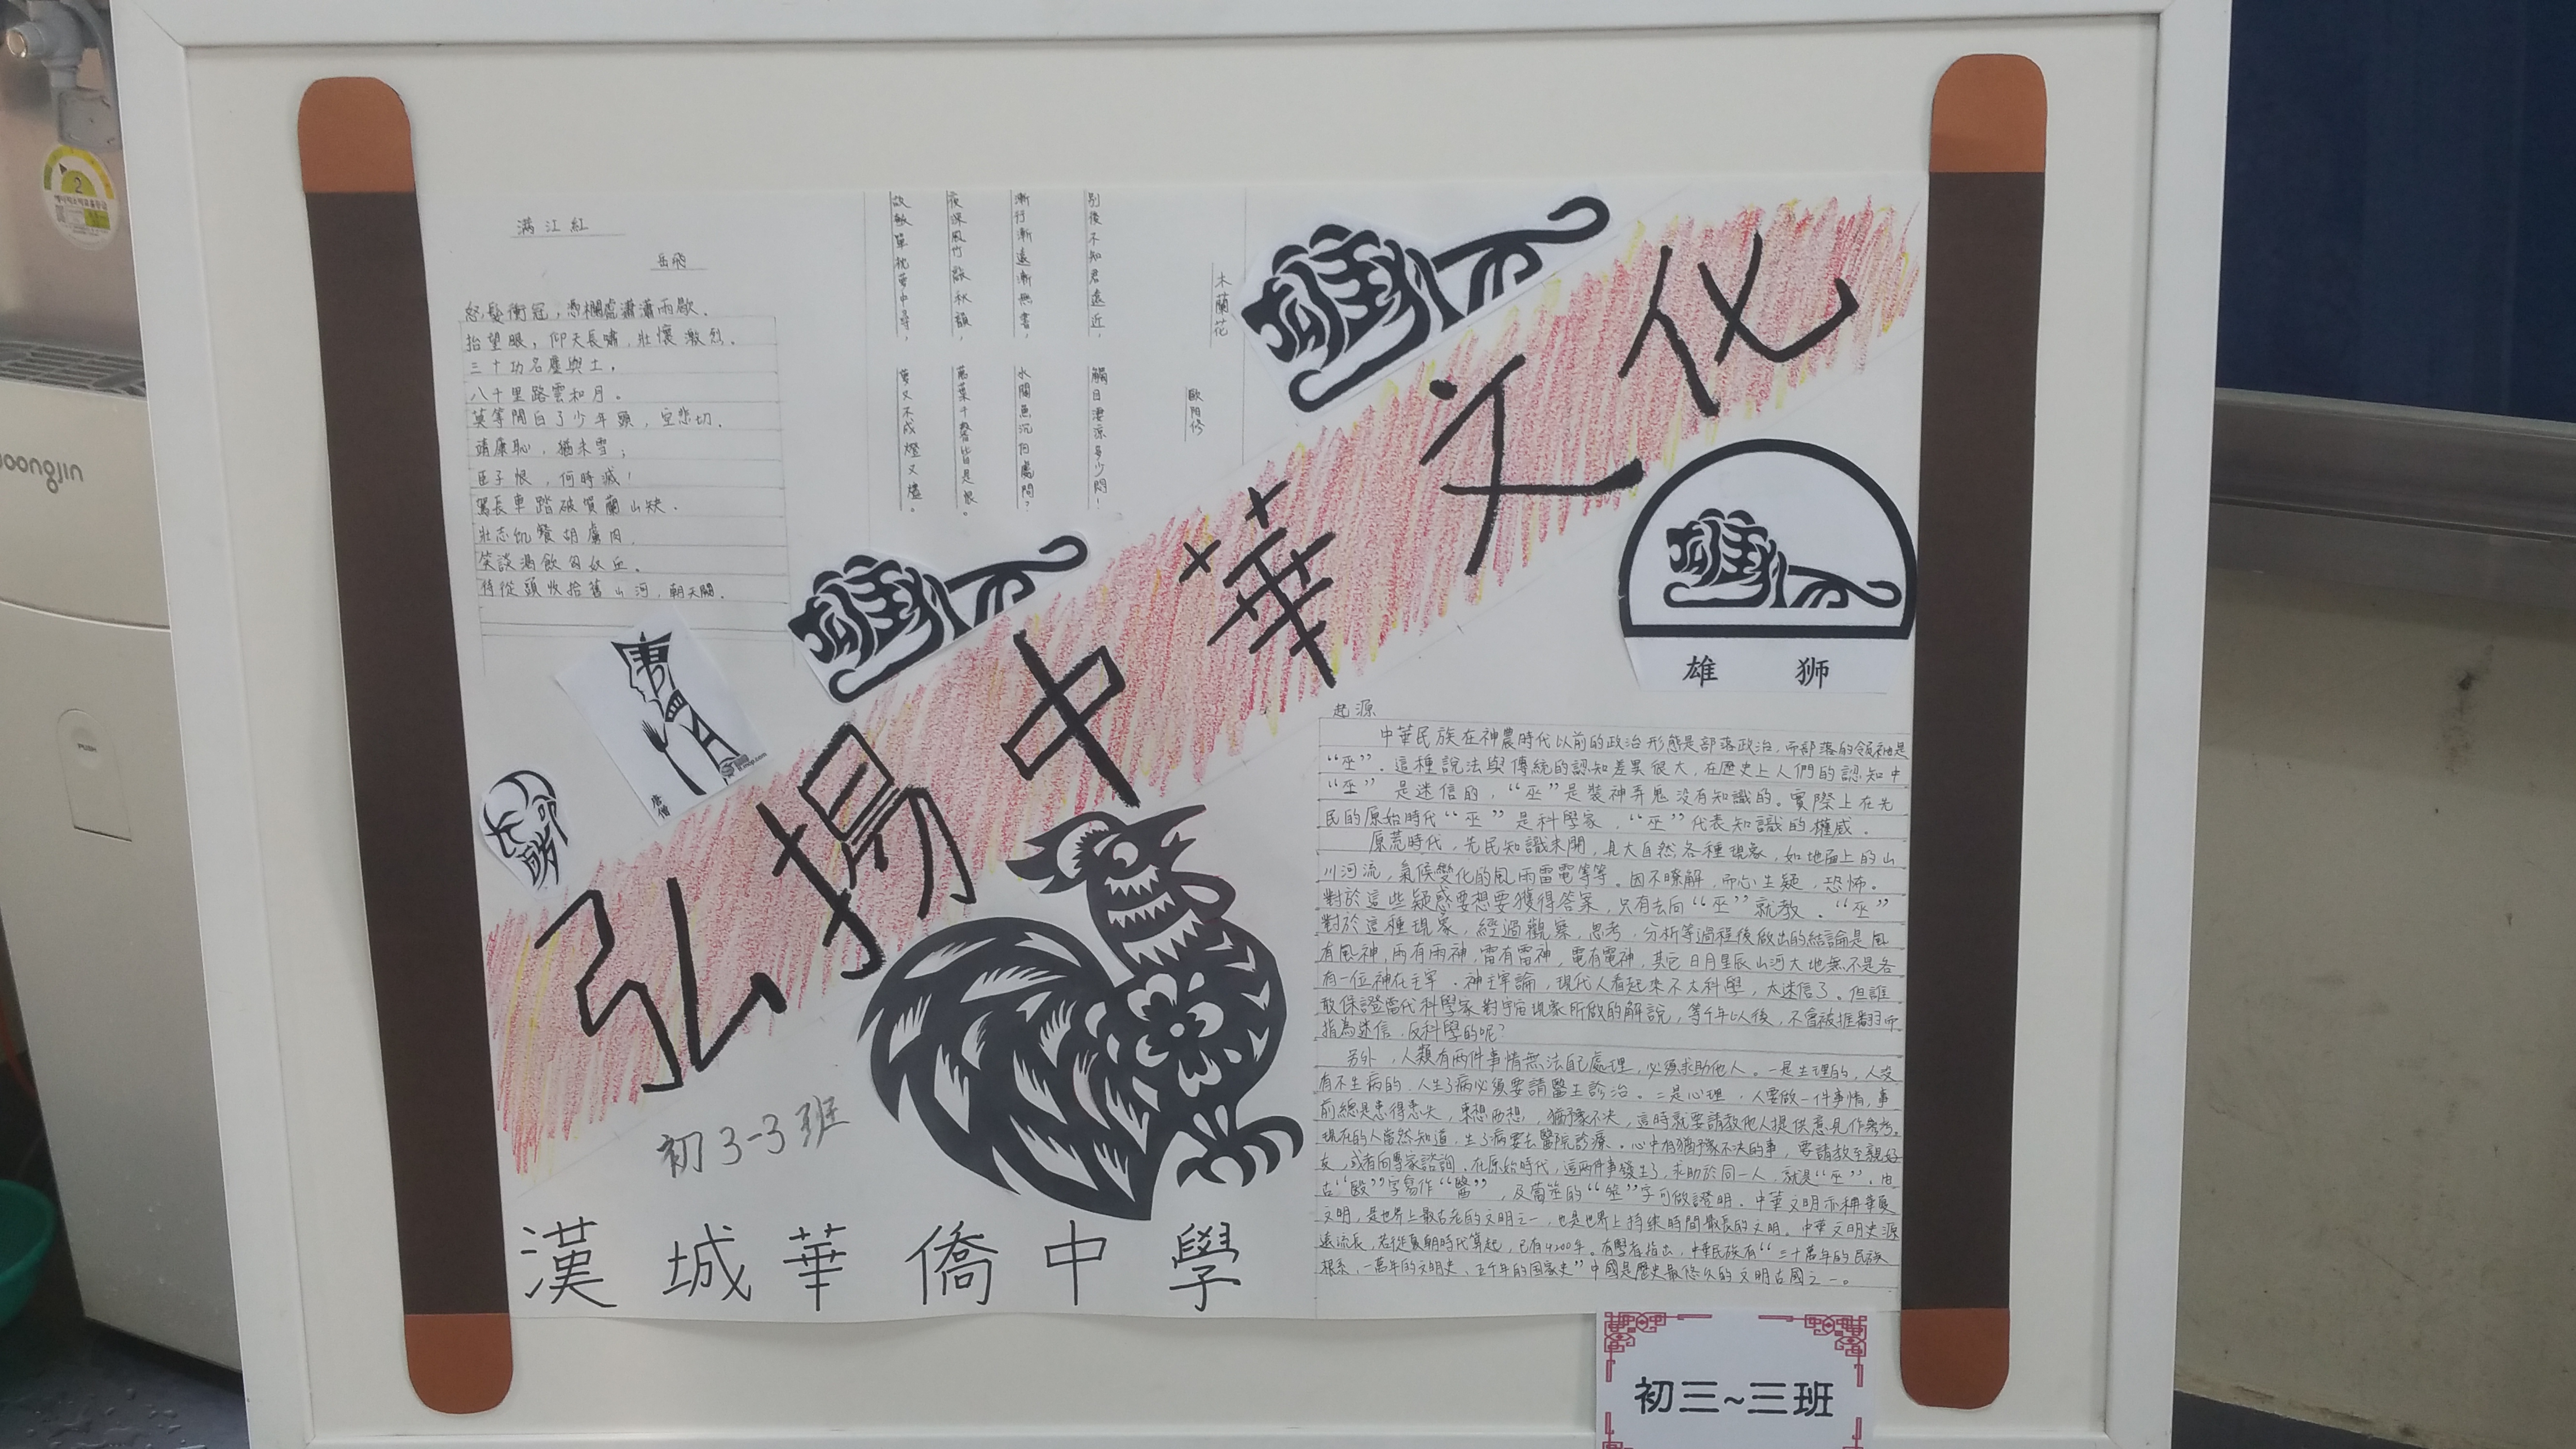 滿江紅
岳飛
怒髮衝冠，憑欄處瀟瀟雨歇．
抬望眼，仰天長嘯，壯懷激烈．
三十功名塵與土，
八千里路雲和月。
莫等閒白了少年頭，空悲切．
靖康恥，猶未雪；
臣子恨，何時滅！
駕長車踏破賀蘭山缺．
壯志飢餐胡虜肉．
笑談渴飲匈奴血．
待從頭收拾舊山河，朝天闕．
木蘭花
歐陽修
別後不知君遠近，觸目淒涼多少悶！
漸行漸遠漸無書，水闊魚沉何處問？
夜深風竹敲秋韻，萬葉千聲皆是恨。
敧單枕夢中尋，夢又不成燈又燼。
弘揚中華文化
雄 狮
唐僧
孔明
初3-3班
漢城華僑中學
起源
中華民族在神農時代以前的政治形態是部落政治，而部落的領袖是
“巫”．這種說法與傳統的認知差異很大，在歷史上人們的認知中
“巫” 是迷信的，“巫”是裝神弄鬼沒有知識的。實際上在先
民的原始時代“巫” 是科學家，“巫”代表知識的權威．
原荒時代，先民知識未開，見大自然各種現象，如地面上的山
川河流，氣候變化的風雨雷電等等。因不瞭解，而心生疑，恐怖。
對於這些疑惑要想要獲得答案，只有去向“巫”就教．“巫”
對於這種現象，經過觀察，思考，分析等過程後做出的結論是風
有風神，雨有雨神，雷有雷神，電有電神，其它日月星辰山河大地無不是各
有一位神在主宰．神主宰論，現代人看起來不太科學，太迷信了。但誰
敢保證當代科學家對宇宙現象所做的解說，等千年以後，不會被推翻而
指為迷信．反科學的呢？
另外，人類有兩件事情無法自己處理，必須求助他人。一是生理的，人沒
有不生病的．人生了病必須要請醫生診治。二是心理，人要做一件事情，事
前總是患得患失，東想西想，猶豫不決，這時就要請教他人提供意見作參考。
現在的人當然知道，生了病要去醫院診療。心中有猶豫不決的事，要請教至親好
友，或者向專家諮詢．在原始時代，這兩件事發生了，求助於同一人，就是“巫”．由
古“毉”字寫作“醫”，及蓍筮的“筮”字可做證明．中華文明亦稱華夏
文明，是世界上最古老的文明之一，也是世界上持續時間最長的文明．中華文明史源
遠流長，若從夏朝時代算起，已有4200年。有學者指出，中華民族有“三十萬年的民族
根系，一萬年的文明史、五千年的国家史”中國是歷史最悠久的文明古國之一。
初三~三班
woongjin
PUSH
2